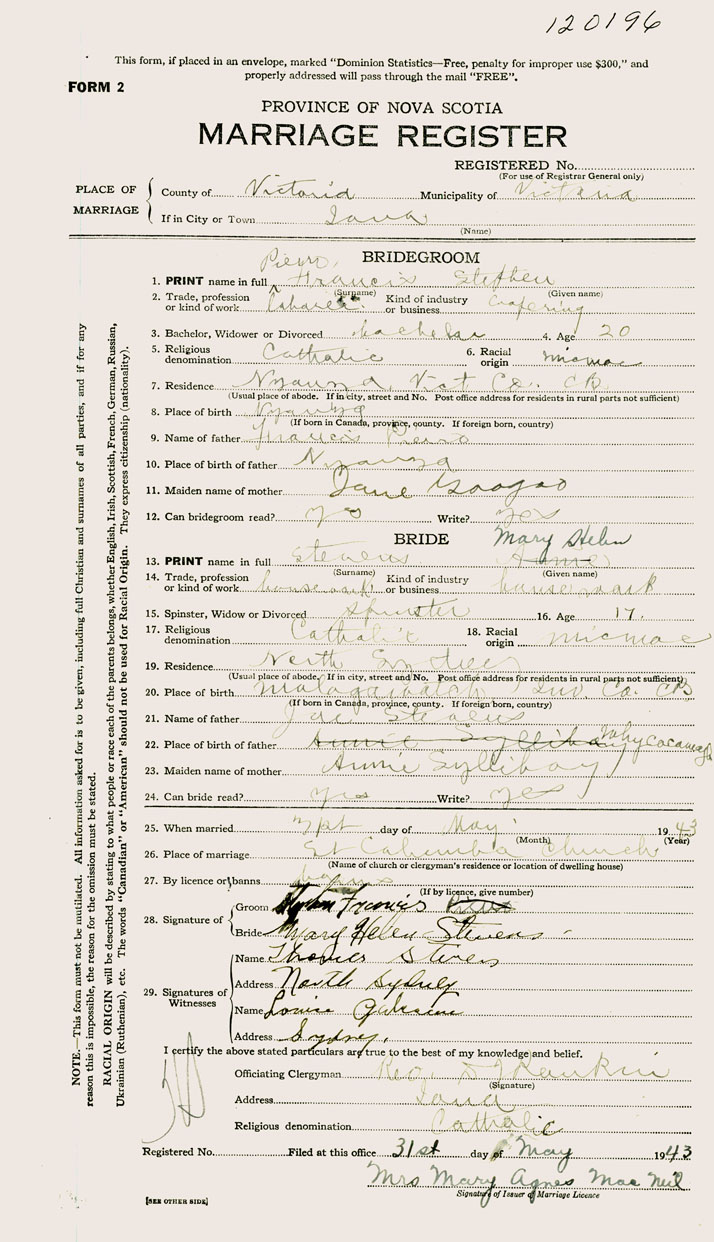 120196
This form, if placed in an envelope, marked "Dominion Statistics—Free, penalty for improper use $300," and
properly addressed will pass through the mail "FREE".
FORM 2
PROVINCE OF NOVA SCOTIA
MARRIAGE REGISTER
REGISTERED No.
(For use of Registrar General only)
PLACE OF MARRIAGE
County of Victoria Municipality of Victoria
If in City or Town Iona
(Name)
BRIDEGROOM
Pierro,
1. PRINT name in full Francis Stephen
(Surname) (Given name)
2. Trade, profession or kind of work Labourer Kind of industry or business Coopering
3. Bachelor, Widower or Divorced bachelor 4. Age 20
5. Religious denomination Catholic 6. Racial origin micmac
7. Residence Nyanza Vict Co. CB
(Usual place of abode. If in city, street and No. Post office address for residents in rural parts not sufficient)
8. Place of birth Nyanza
(If born in Canada, province, county. If foreign born, country)
9. Name of father Francis Pierro
10. Place of birth of father Nyanza
11. Maiden name of mother Jane Googoo
12. Can bridegroom read? yes Write? yes
BRIDE Mary Helen
13. PRINT name in full Stevens
(Surname) (Given name)
14. Trade, profession or kind of work housework Kind of industry or business housework
15. Spinster, Widow or Divorced Spinster 16. Age 17.
17. Religious denomination Catholic 18. Racial origin micmac
19. Residence North
(Usual place of abode. If in city, street and No. Post office address for residents in rural parts not sufficient)
20. Place of birth Malagawatch Inv Co. CB
(If born in Canada, province, county. If foreign born, country)
21. Name of father Joe Stevens
22. Place of birth of father Annie Syllibay Whycocomagh
23. Maiden name of mother Annie Syllibay
24. Can bride read? yes Write? yes
25. When married day of May 1943
(Month) (Year)
26. Place of marriage St Columba Church
(Name of church or clergyman's residence or location of dwelling house)
27. By licence or banns banns
(If by licence, give number)
28. Signature of
Groom Francis
Bride Mary Helen Stevens
29. Signatures of Witnesses
Name Thomas Stevens
Address North Sydney
Name Louise
Address Sydney.
I certify the above stated particulars are true to the best of my knowledge and belief.
Officiating Clergyman Rev Rankin
(Signature)
Address Iona
Religious denomination Catholic
Registered No. Filed at this office 31st day of May 1943
Mrs Mary Agnes Mac Neil
Signature of Issuer of Marriage Licence
[SEE OTHER SIDE]
NOTE.—This form must not be mutilated. All information asked for is to be given, including full Christian and surnames of all parties, and if for any
reason this is impossible, the reason for the omission must be stated.
RACIAL ORIGIN will be described by stating to what people or race each of the parents belongs, whether English, Irish, Scottish, French, German, Russian,
Ukrainian (Ruthenian), etc. The words "Canadian" or "American" should not be used for Racial Origin. They express citizenship (nationality).